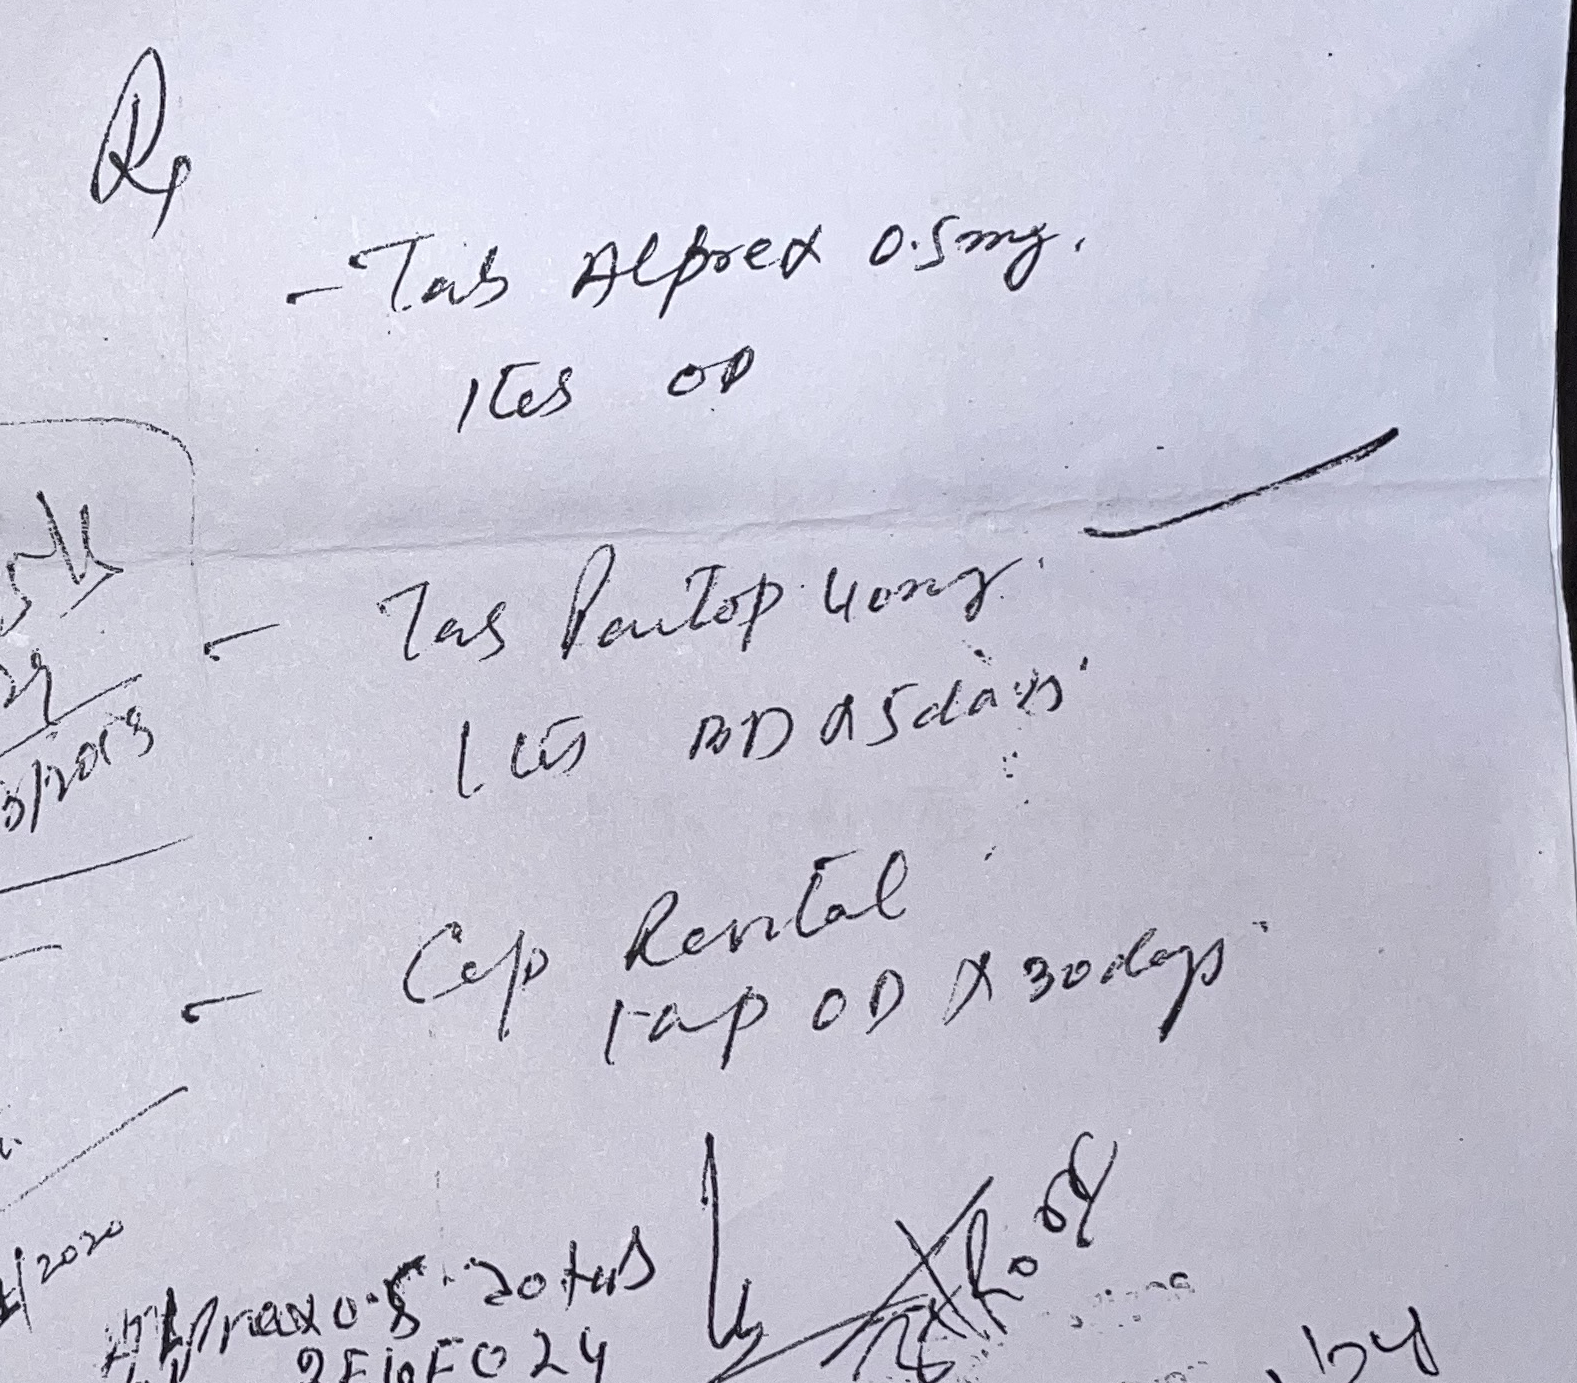 Rx
- Tab Alprex 0.5mg.
1 tab OD
- Tab Pantop 40mg.
1 tab BD x 5 days
- Cap Revital
1 cap OD x 30 days
3/2013
/2020
Alprax 0.5 20 tab
by